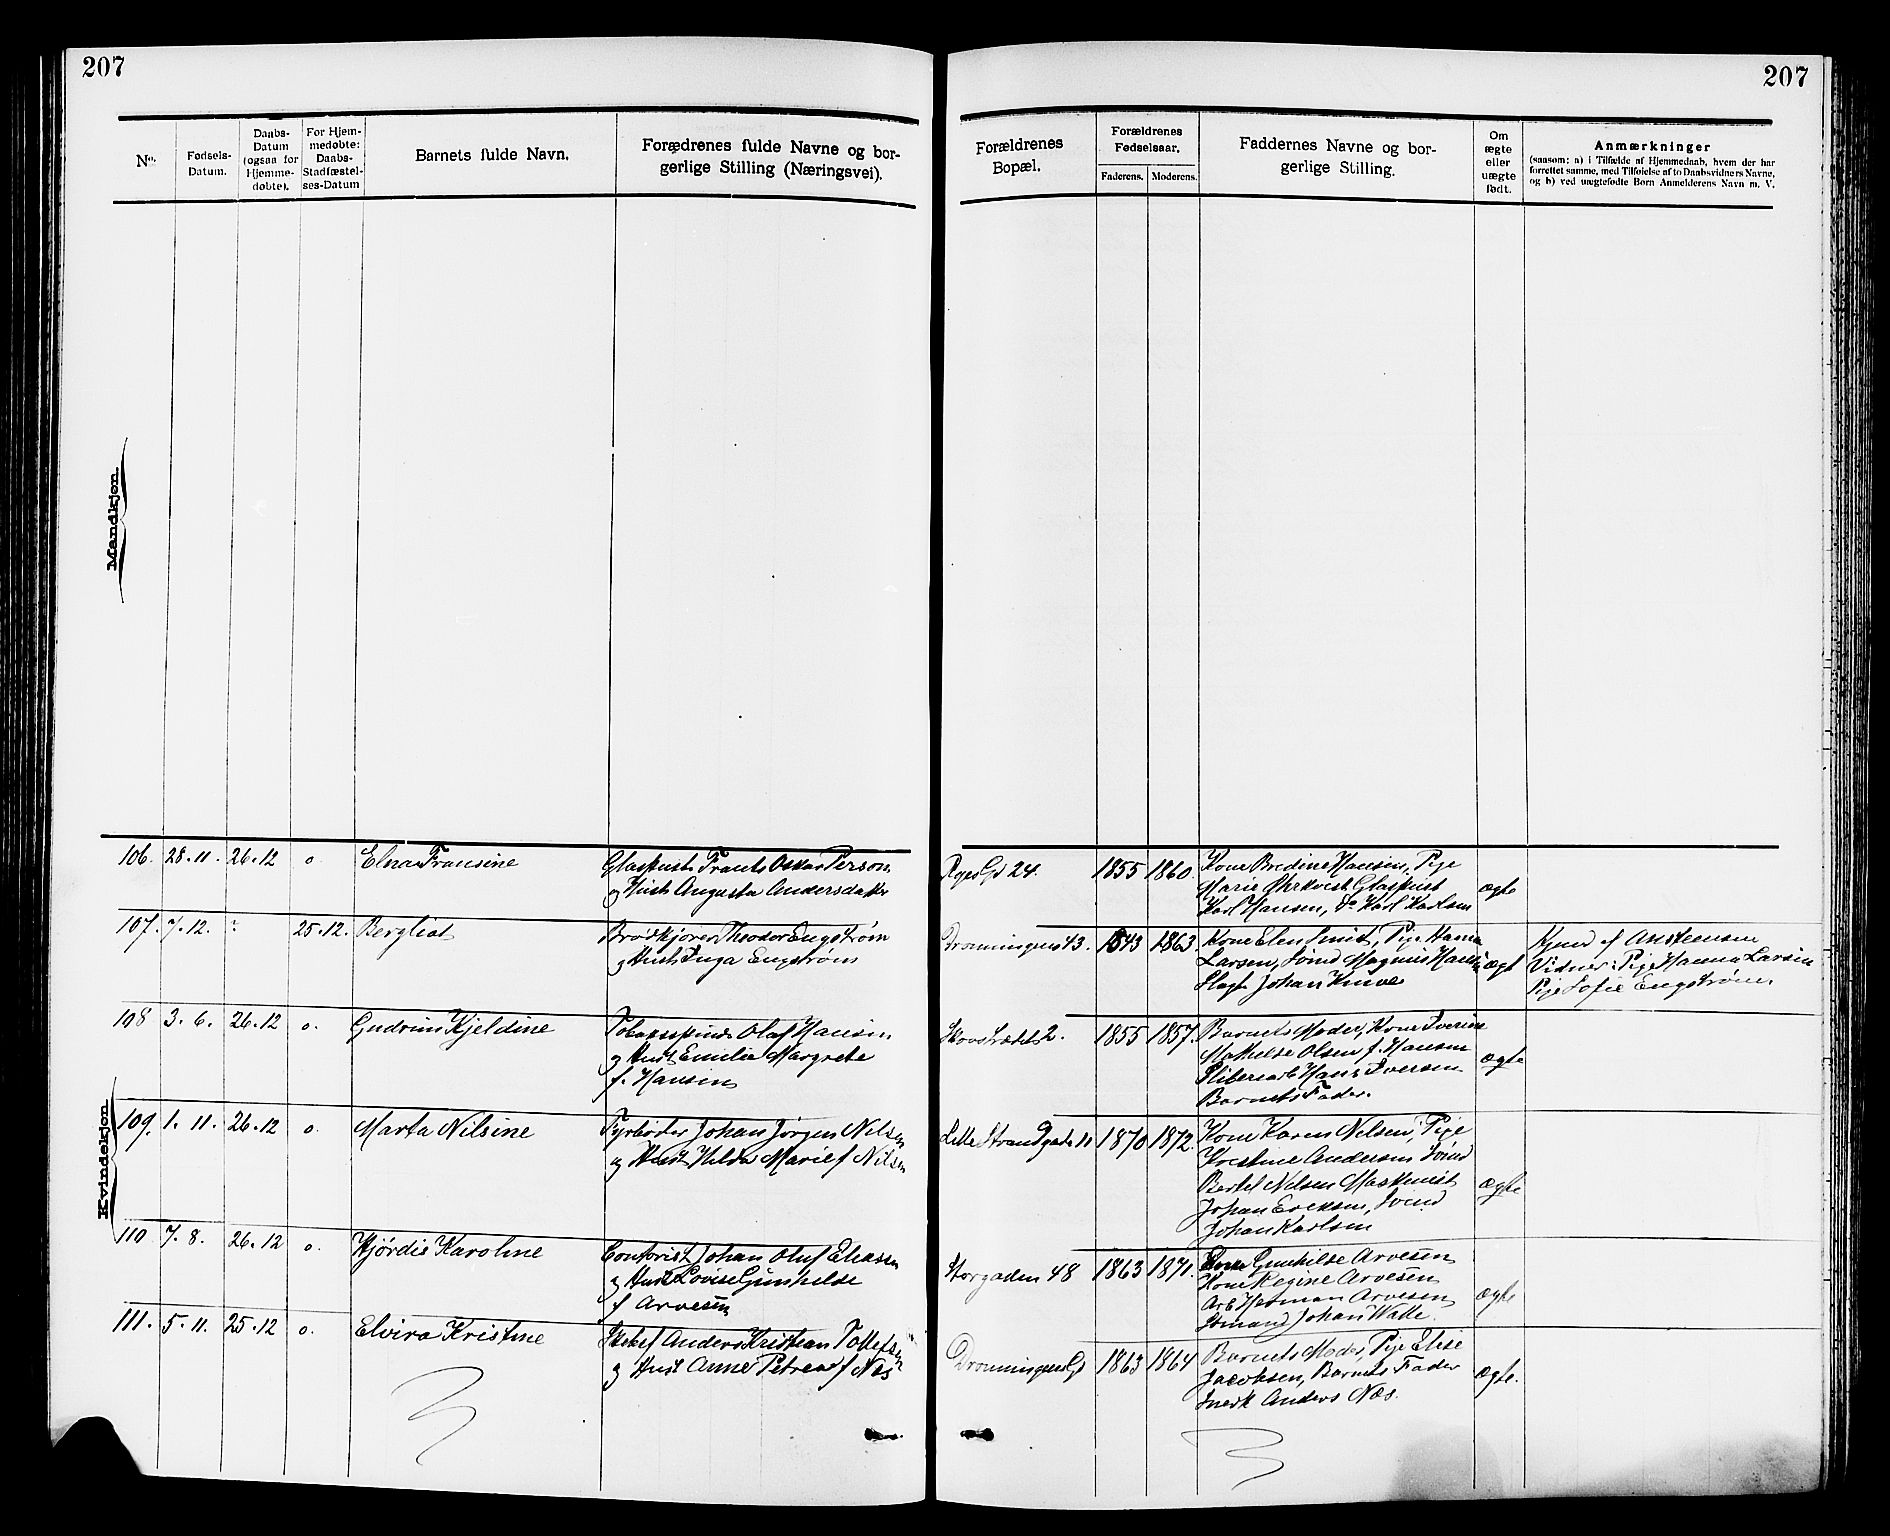 207
207
No.
Fødsels-
Datum.
Daabs-
Datum
(ogsaa for
Hjemme-
døbte).
For Hjem-
medøbte:
Daabs-
Stadfæstel-
ses-Datum
Barnets fulde Navn.
Forædrenes fulde Navne og bor-
gerlige Stilling (Næringsvei).
Forældrenes
Bopæl.
Forældrenes
Fødselsaar.
Faderens.
Moderens.
Faddernes Navne og bor-
gerlige Stilling.
Om
ægte
eller
uægte
født.
Anmærkninger
(saasom: a) i Tilfælde af Hjemmedaab, hvem der har
forrettet samme, med Tilføielse af to Daabsvidners Navne,
og b) ved uægtefødte Børn Anmelderens Navn m. V.
Mandkjøn.
Kvindekjøn
106. 28.11. 26.12 o. Elna Fransine
Glaspust Frants Oskar Person
og Hust Augusta Andersdatter
24. 1855 1860.
Kone Bredine Hansen, Pige
Marie Glaspust
Karl Hansen, do Karl Karlsen
ægte
107. 7.12. 25.12. Bergliot
Brødkjører Theodor Engstrøm
og Hust Inga Engstrøm
Dronningens 43. 1843 1863.
Kone Elen Smist, Pige Hanna
Larsen, Magnus Hansen
Slagt Johan
ægt
af Ansteensen
Vidner: Pige Hanna Larsen
Pige Sofie Engstrøm.
108 3.6. 26.12 o. Gudrun Kjeldine
Tobaksspind Olaf Hansen
og Hust Emilie Margrete
f. Hansen
2. 1855 1857.
Barnets Moder, Kone
Mathilde Olsen f. Hansen
Hans Iversen
Barnets Fader.
ægte
109. 1.11. 26.12 o. Marta Nilsine
Fyrbøder Johan Jørgen Nilsen
og Hust Hilda Marie f Nilsen
Lille Strandgade 11 1870 1872.
Kone Karen Nilsen, Pige
Kristine Andersen
Bertel Nilsen Maskinist
Johan
Johan Karlsen
ægte
110 7.8. 26.12 o. Hjørdis Karoline
Contorist Johan Oluf Eliassen
og Hust Lovise Gunhilde
f Arvesen
Storgaden 48 1863 1871.
Gunhilde Arvesen
Kone Regine Arvesen
Arb Herman Arvesen
Johan
ægte
111. 5.11. 25.12 o. Elvira Kristine
Anders Kristian Tollefsen
og Hust Anne Petrea f Næs
Dronningens Gd 1863 1864
Barnets Moder, Pige Elise
Jacobsen, Barnets Fader
Anders Næs.
ægte.